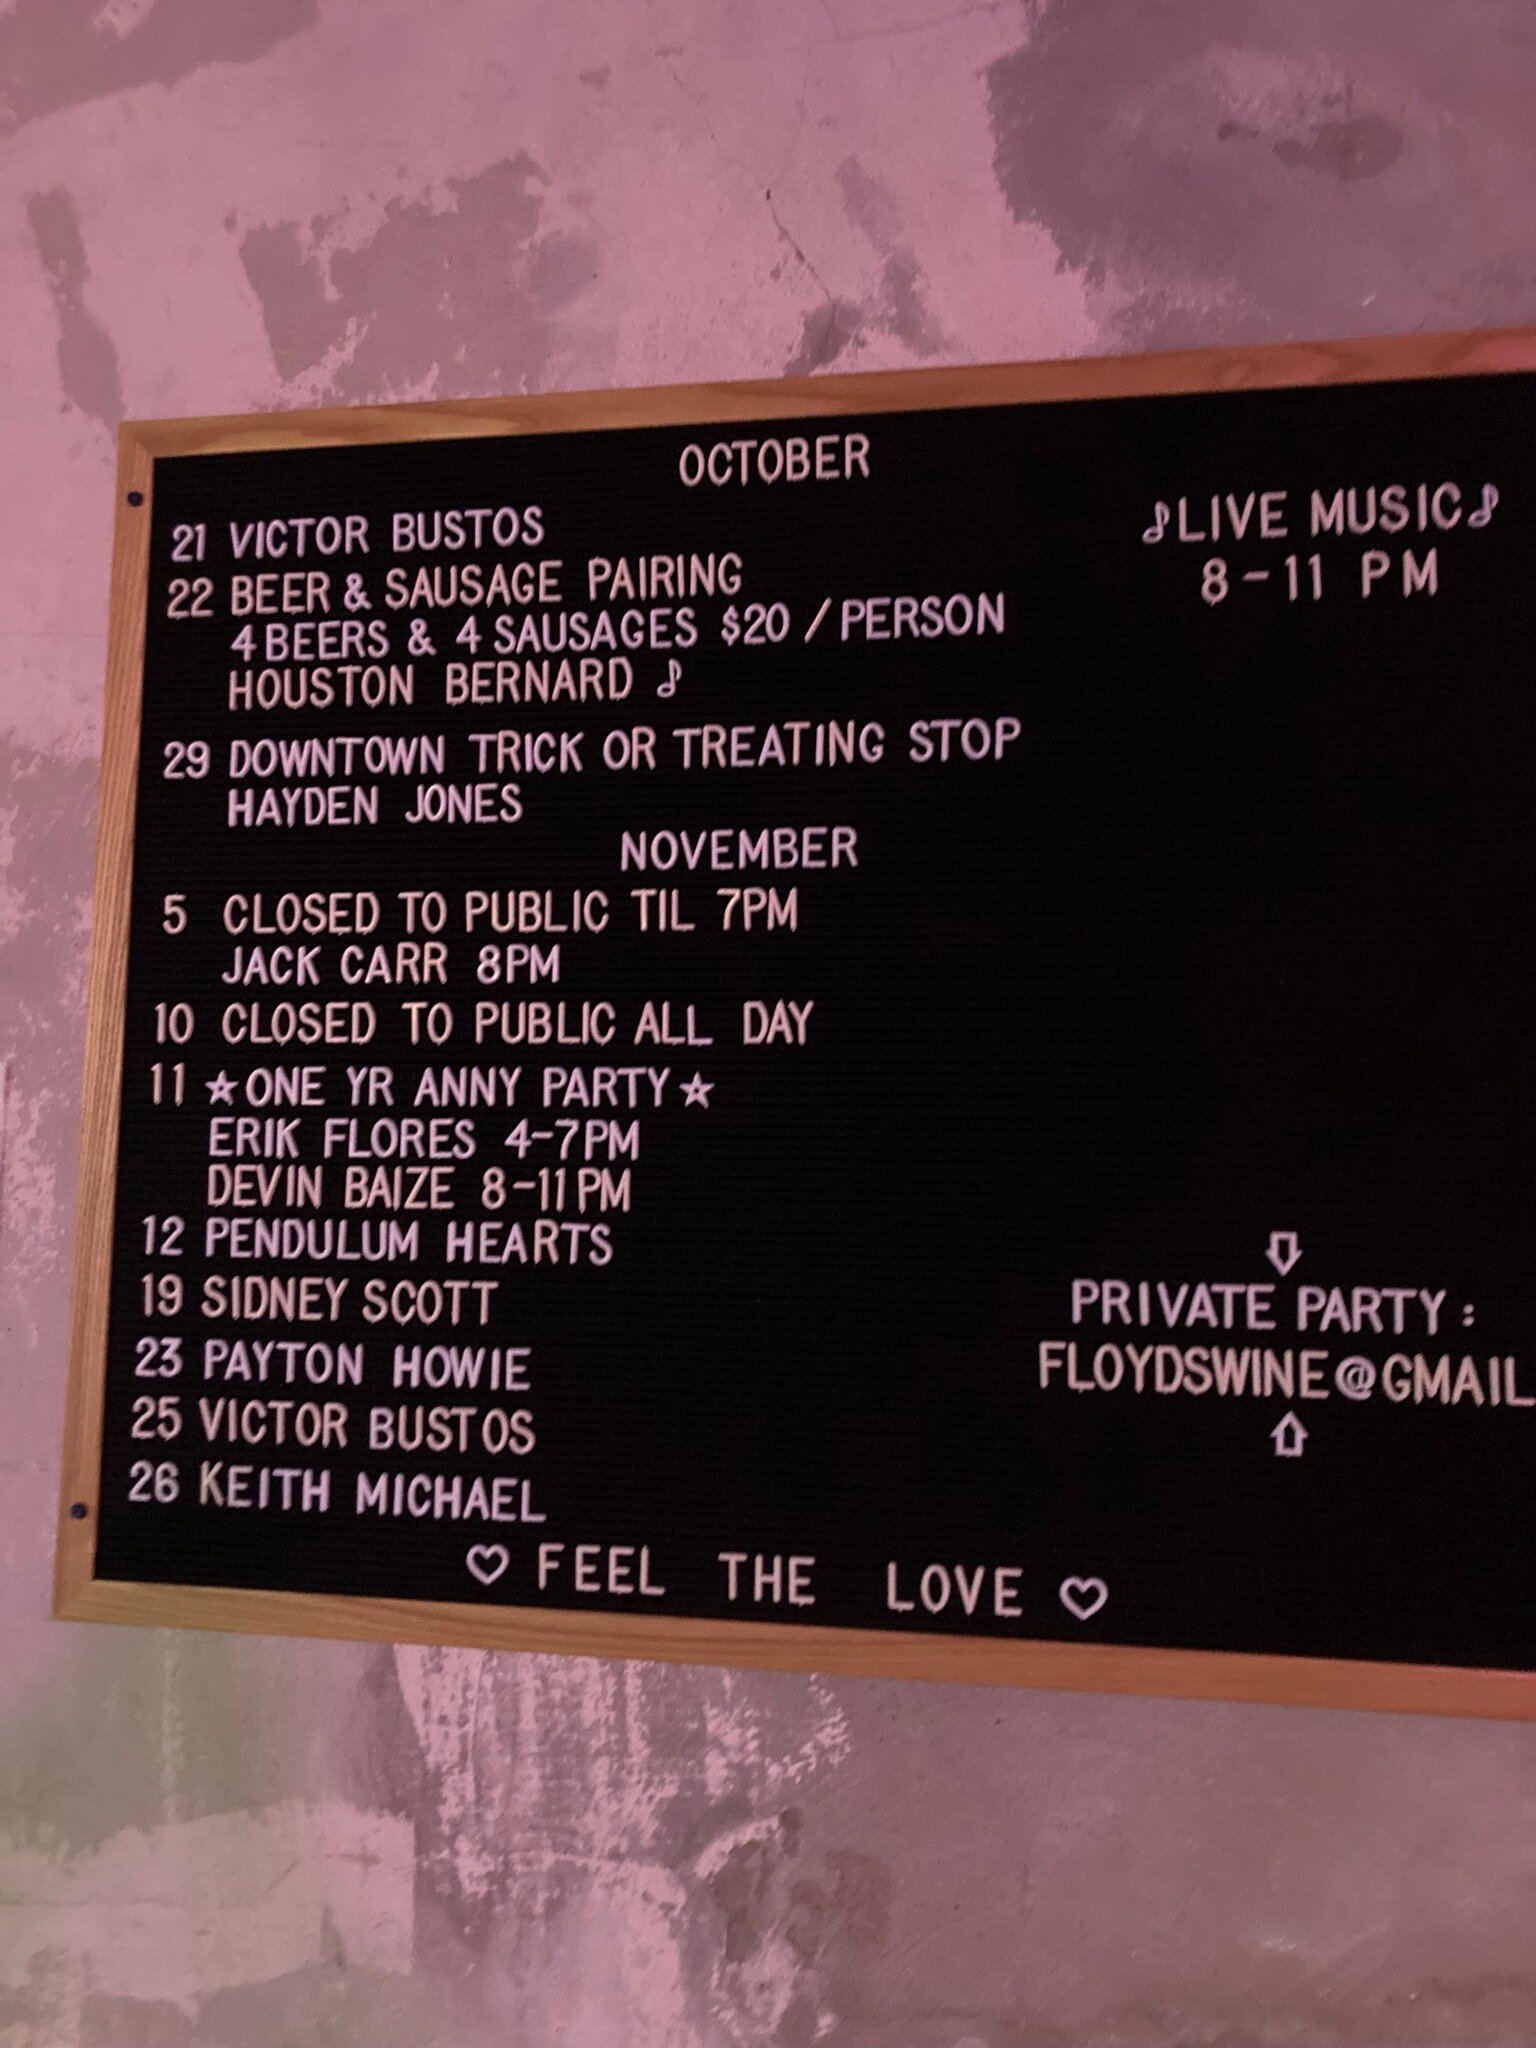 OCTOBER
21 VICTOR BUSTOS
22 BEER & SAUSAGE PAIRING
4 BEERS & 4 SAUSAGES $20 / PERSON
HOUSTON BERNARD ♪
29 DOWNTOWN TRICK OR TREATING STOP
HAYDEN JONES
NOVEMBER
5 CLOSED TO PUBLIC TIL 7PM
JACK CARR 8PM
10 CLOSED TO PUBLIC ALL DAY
11 ☆ONE YR ANNY PARTY☆
ERIK FLORES 4-7PM
DEVIN BAIZE 8-11PM
12 PENDULUM HEARTS
19 SIDNEY SCOTT
23 PAYTON HOWIE
25 VICTOR BUSTOS
26 KEITH MICHAEL
♡ FEEL THE LOVE ♡
♪LIVE MUSIC♪
8-11 PM
⇩
PRIVATE PARTY:
FLOYDSWINE@GMAIL
⇧